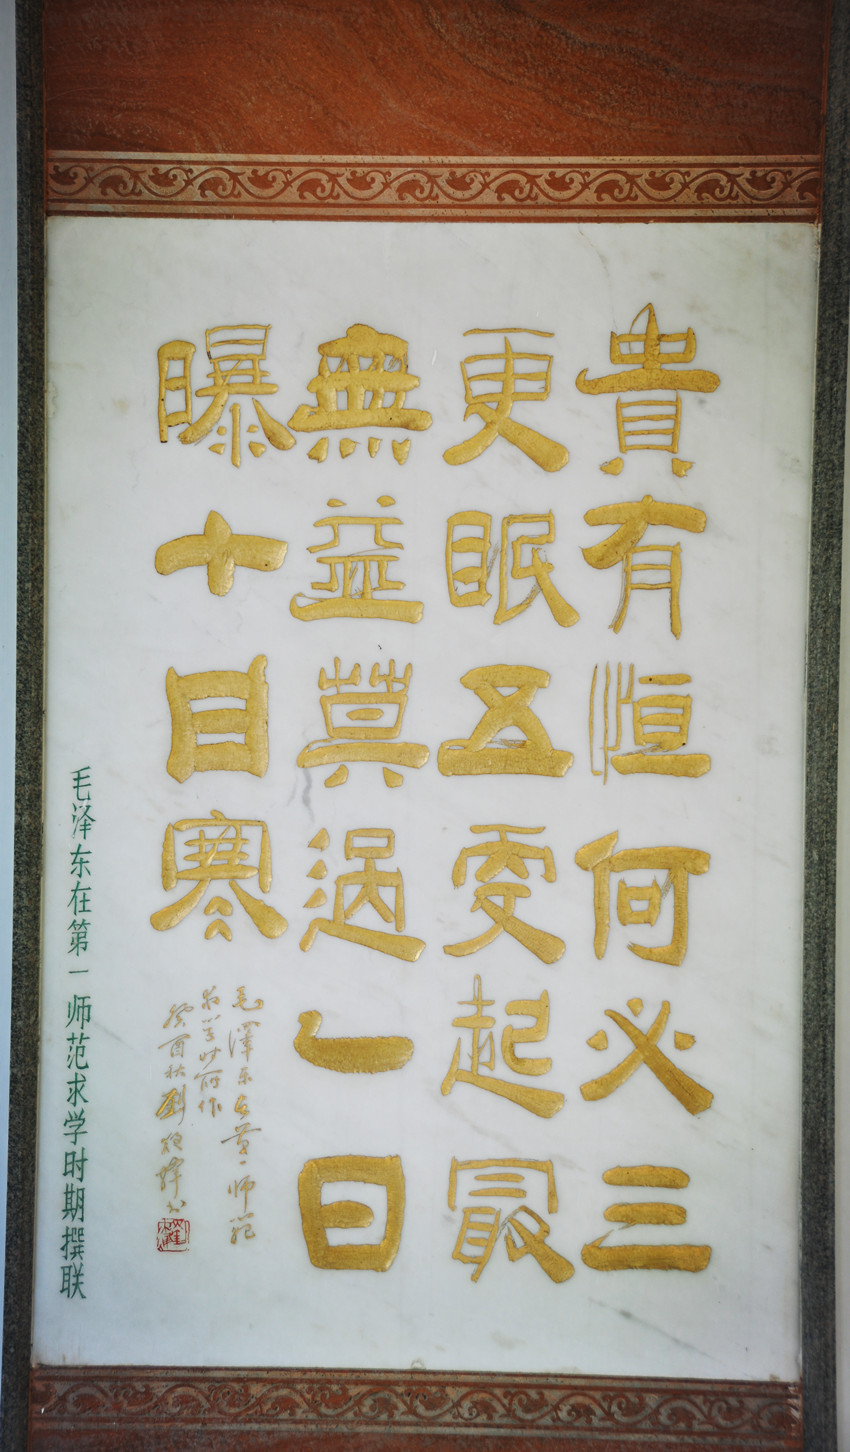 貴有恒何必三
更眠五更起最
無益莫過一日
曝十日寒
毛澤东在第一师範
求学时所作
癸酉秋劉
毛泽东在第一师范求学时期撰联